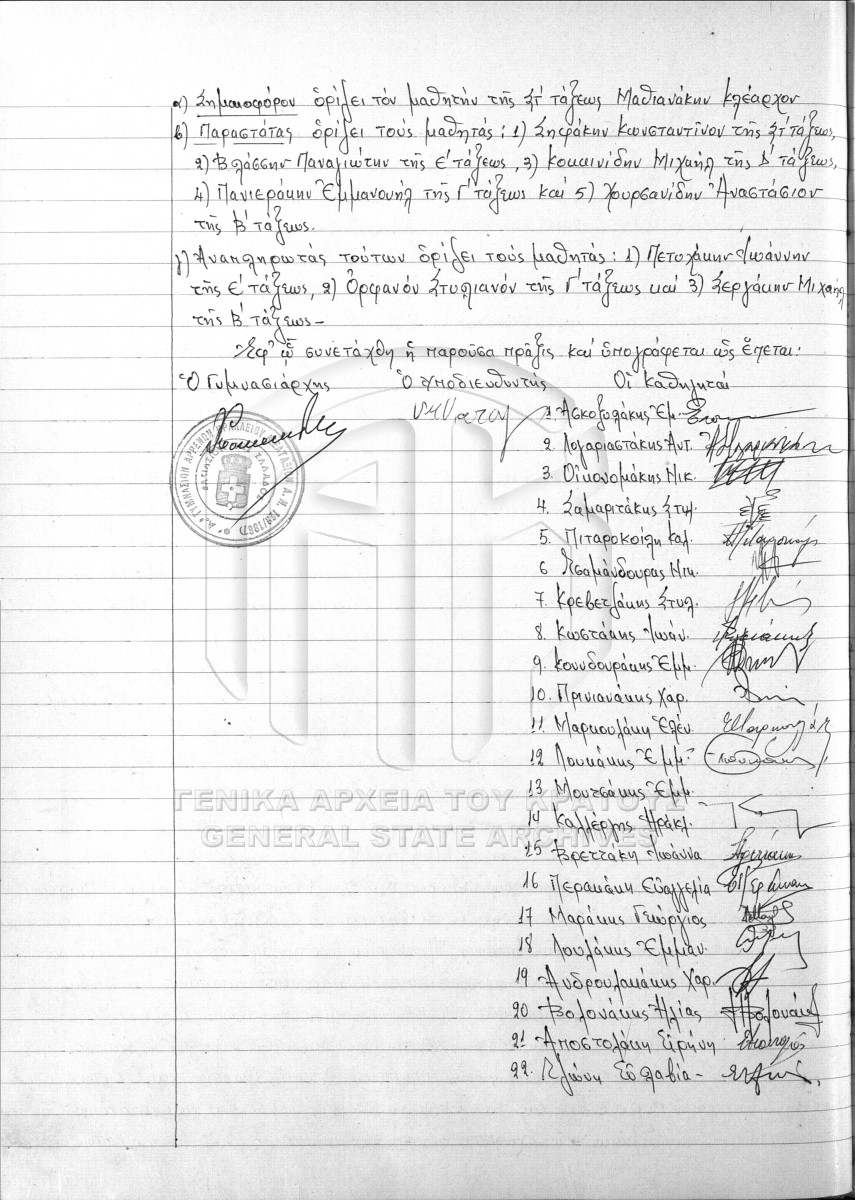 α) Σημαιοφόρον ὁρίζει τόν μαθητήν τῆς Στ΄ τάξεως Μαθιανάκην Κλέαρχον
β) Παραστάτας ὁρίζει τούς μαθητάς: 1) Σηφάκην Κωνσταντῖνον τῆς Στ΄ τάξεως,
2) Βλάσσην Παναγιώτην τῆς Ε΄ τάξεως, 3) Κοκκινίδην Μιχαήλ τῆς Δ΄ τάξεως,
4) Πανιεράκην Ἐμμανουήλ τῆς Γ΄ τάξεως καί 5) Χουρσανίδην Ἀναστάσιον
τῆς Β΄ τάξεως.
γ) Ἀναπληρωτάς τούτων ὁρίζει τούς μαθητάς: 1) Πετυχάκην Ἰωάννην
τῆς Ε΄ τάξεως, 2) Ὀρφανόν Στυλιανόν τῆς Γ΄ τάξεως καί 3) Σεργάκην Μιχαήλ
τῆς Β΄ τάξεως –
Ἐφ' ᾧ συνετάχθη ἡ παροῦσα πρᾶξις καί ὑπογράφεται ὡς ἕπεται:
Ὁ Γυμνασιάρχης Ὁ Ὑποδιευθυντής Οἱ καθηγηταί
1 Ἀσκοξυλάκης Ἐμ.
2. Λογαριαστάκης Ἀντ.
3. Οἰκονομάκης Νικ.
4. Σαμαριτάκης Στυλ.
5. Πιταροκοίλη Καλ.
6 Τσαμάνδουρας Νικ.
7. Κρεβετζάκης Στυλ.
8. Κωστάκης Ἰωάν.
9. Κουνδουράκης Ἐμμ.
10. Πρινιανάκης Χαρ.
11. Μαρκουλάκη Ἑλέν.
12 Λουκάκης Ἐμμ.
13 Μουτσάκης Ἐμμ.
14 Καλλέργης Ἡρακλ.
15 Βρεττάκη Ἰωάννα
16 Περακάκη Εὐαγγελία
17 Μαράκης Γεώργιος
18 Λουλάκης Ἐμμαν.
19 Ἀνδρουλακάκης Χαρ.
20 Βολονάκης Ἠλίας
21 Ἀποστολάκη Εἰρήνη
22. Τζώνη Εὐλαβία –
ΓΕΝΙΚΑ ΑΡΧΕΙΑ ΤΟΥ ΚΡΑΤΟΥΣ
GENERAL STATE ARCHIVES